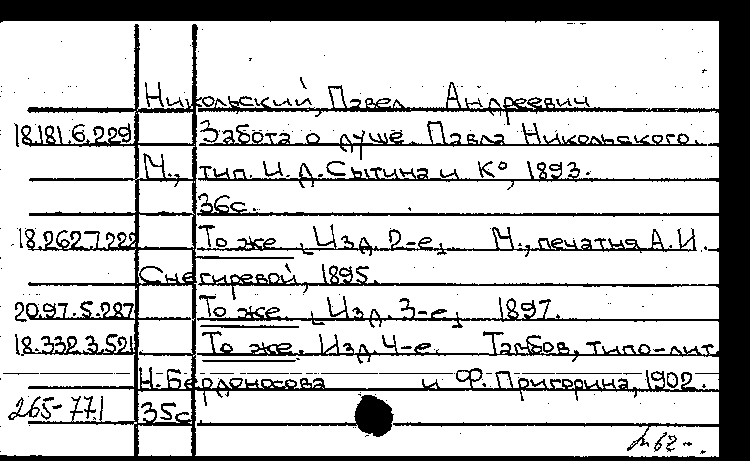 Никольский, Павел Андреевич
18.181.6.229 Забота о душе. Павла Никольского.
М., тип. И.Д.Сытина и К°, 1893.
36с.
18.262.7.222 То же [Изд. 2-е] М., печатня А.И.
Снегиревой, 1895.
20.97.5.287 То же. [Изд. 3-е] 1897.
18.332.3.521 То же. Изд. 4-е. Тамбов, типо-лит.
Н.Бердоносова и Ф.Пригорина, 1902.
265-771 35с